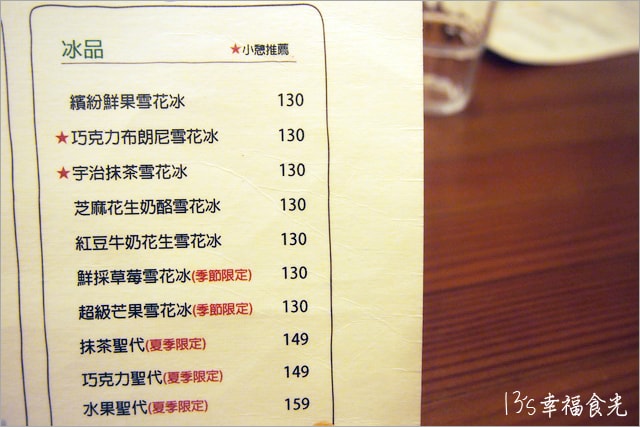 冰品 ★小憩推薦
繽紛鮮果雪花冰 130
★巧克力布朗尼雪花冰 130
★宇治抹茶雪花冰 130
芝麻花生奶酪雪花冰 130
紅豆牛奶花生雪花冰 130
鮮採草莓雪花冰(季節限定) 130
超級芒果雪花冰(季節限定) 130
抹茶聖代(夏季限定) 149
巧克力聖代(夏季限定) 149
水果聖代(夏季限定) 159
13's幸福食光